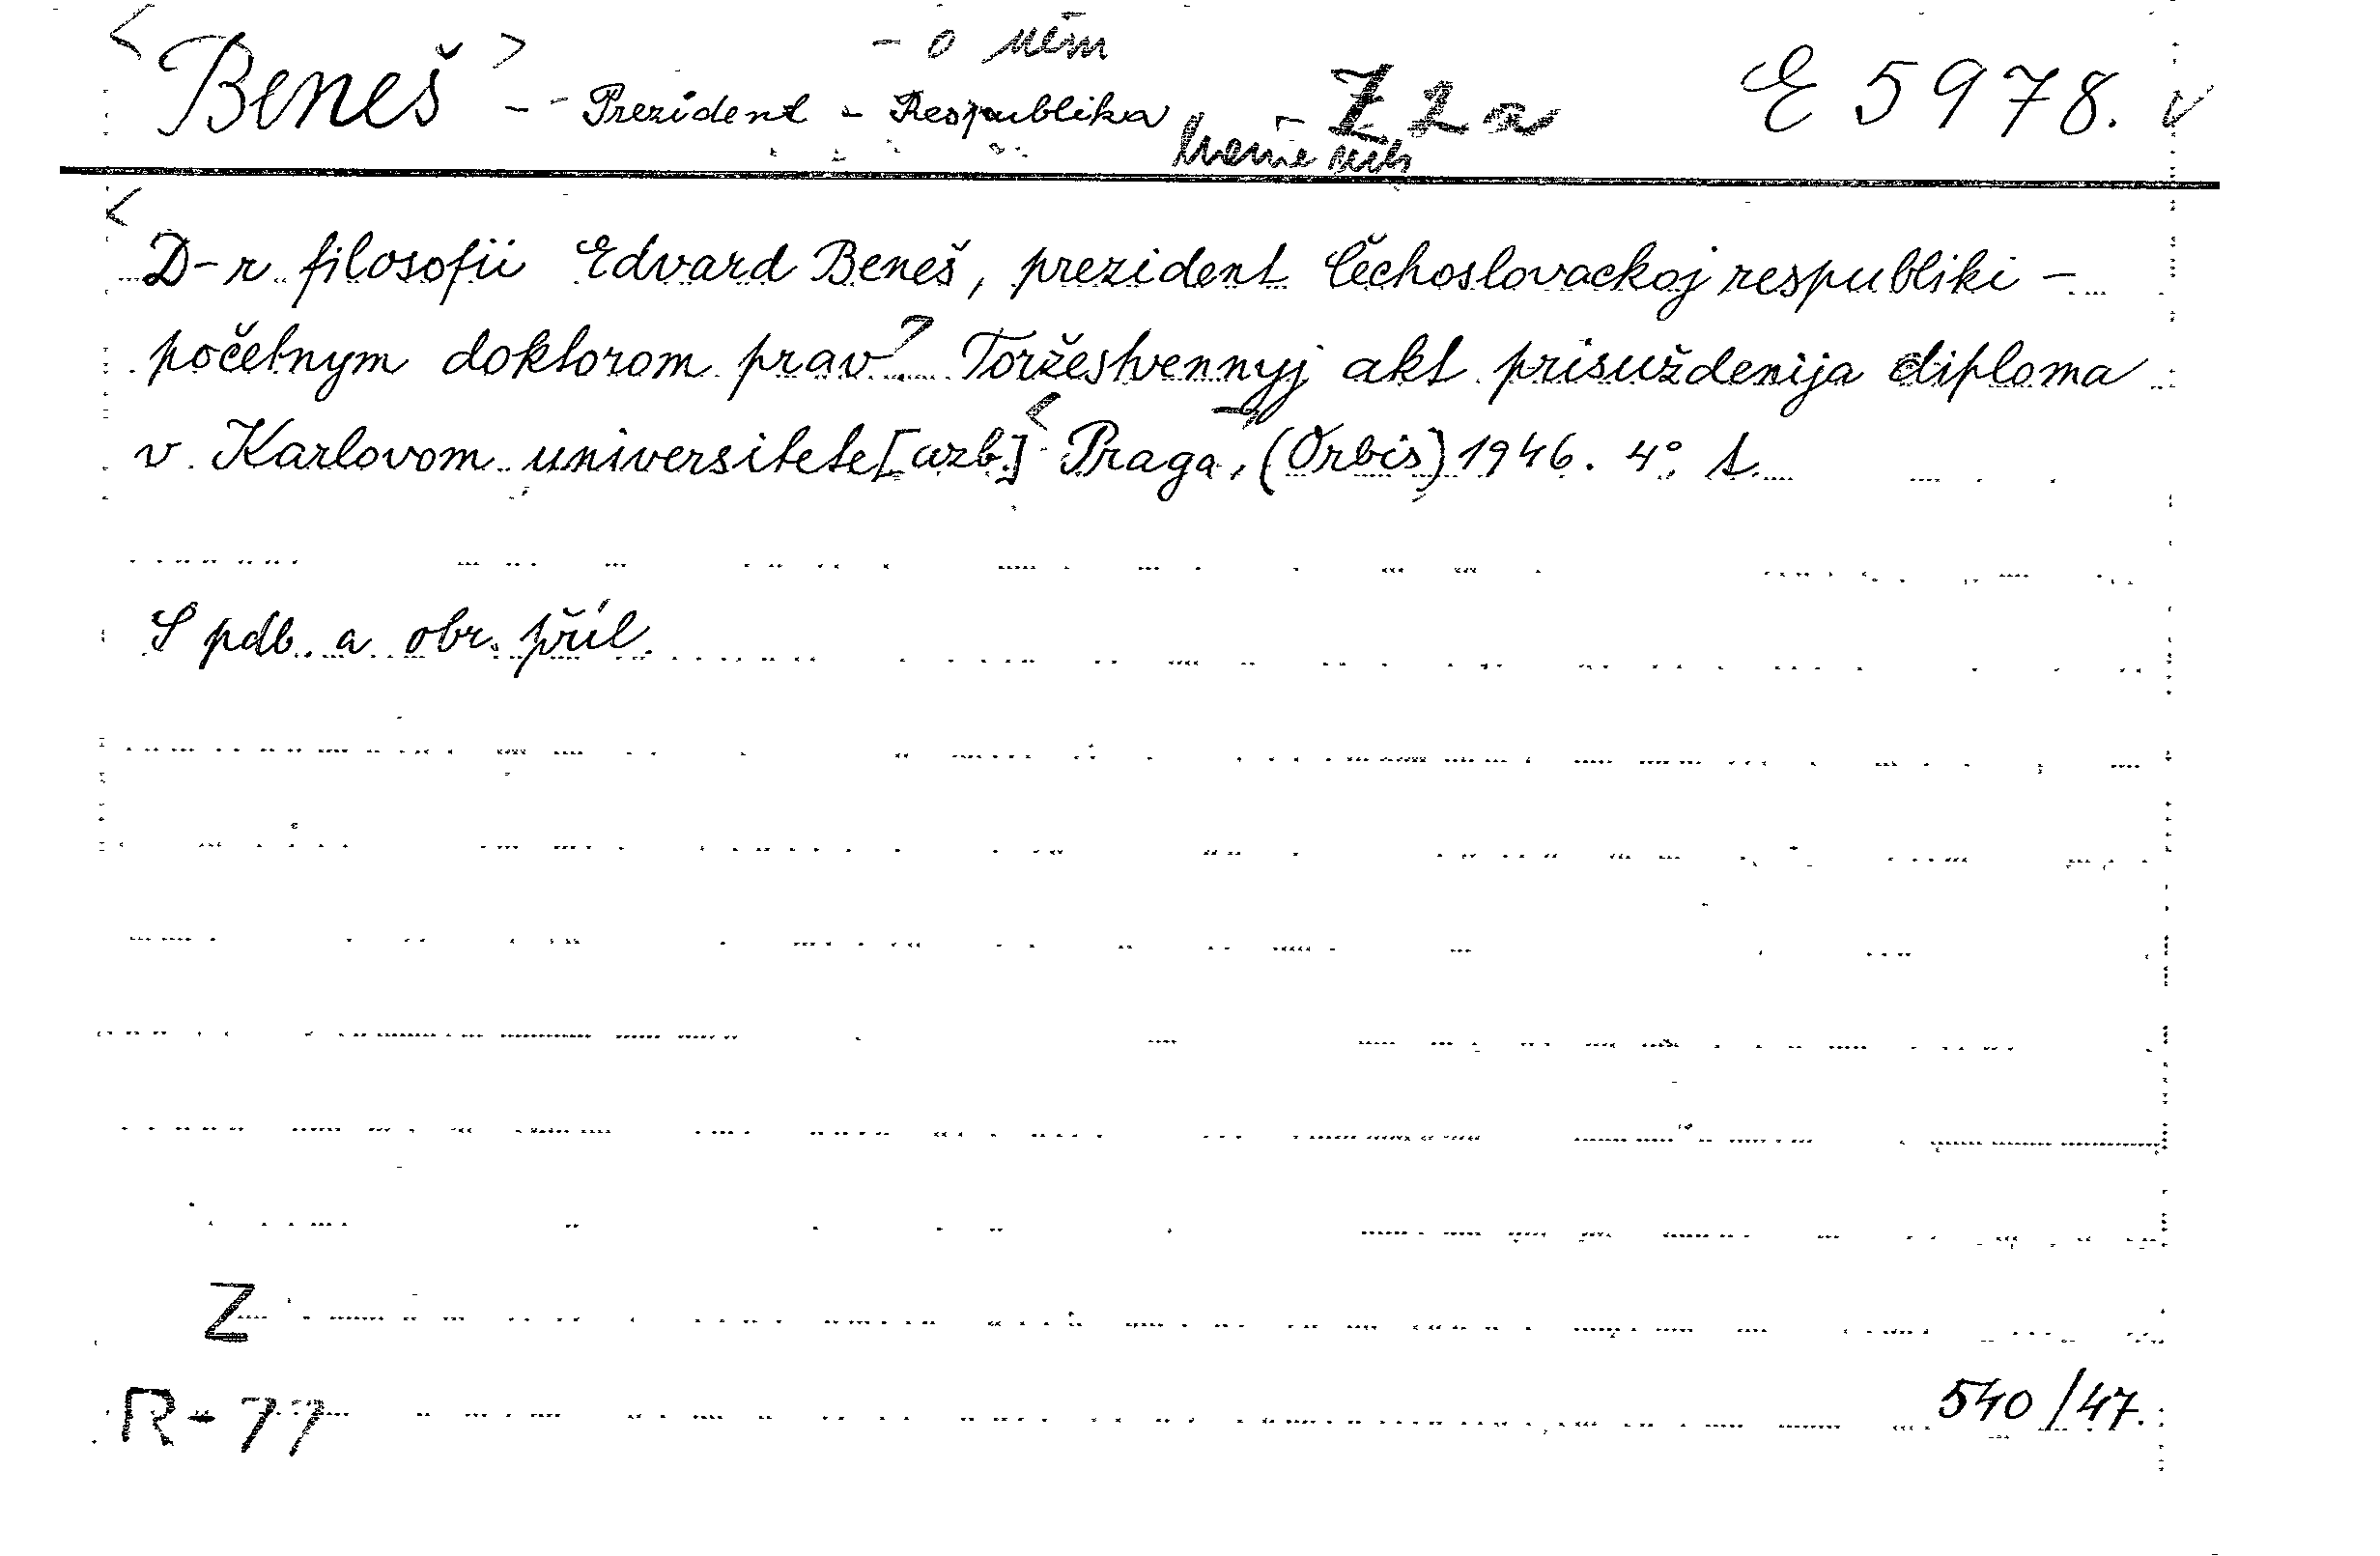 - o něm
<Beneš> - - Prezident - Respublika - Z 2 a E 5978. v
<D-r filosofii Edvard Beneš, prezident Čechoslovackoj respubliki -
početnym doktorom prav? Toržestvennyj akt prisuždenija diploma
v Karlovom universitete [azb.] <Praga>, (Orbis) 1946. 4°. s.
S pdb. a obr. příl.
Z
R-77
540/47.